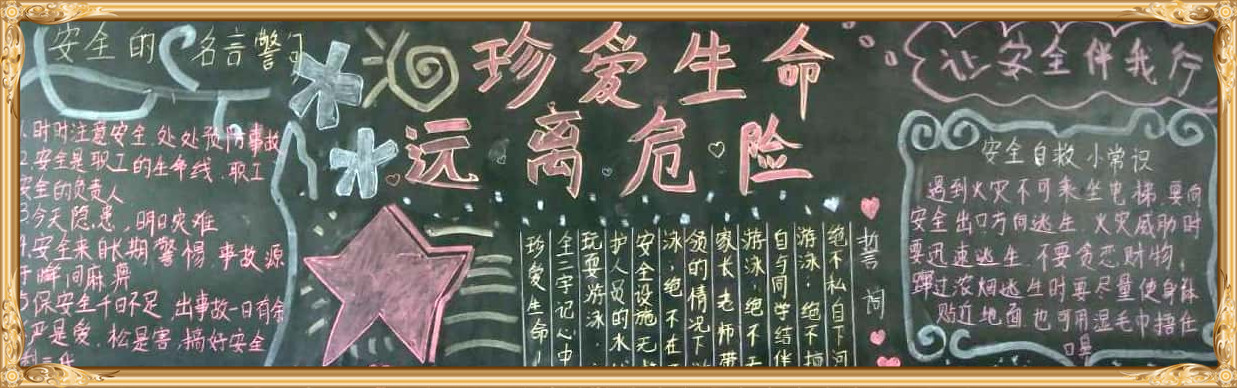 安全的名言警句
1.时时注意安全.处处预防事故
2.安全是职工的生命线.职工
安全的负责人
3今天隐患,明日灾难
4.安全来自长期警惕.事故源
于瞬间麻痹
5保安全千日不足,出事故一日有余
严是爱,松是害,搞好安全
利三
珍爱生命
远离危险
誓词
绝不私自下河
游泳;绝不擅
自与同学结伴
游泳,绝不
家长、老师带
领的情况下
泳;绝不在
安全设施、无
护人员的水
玩耍游泳.
全字记心中
珍爱生命!
让安全伴我行
安全自救小常识
遇到火灾不可乘坐电梯.要向
安全出口方向逃生.火灾威胁时
要迅速逃生.不要贪恋财物,
穿过浓烟逃生时要尽量使身体
贴近地面,也可用湿毛巾捂住
口鼻